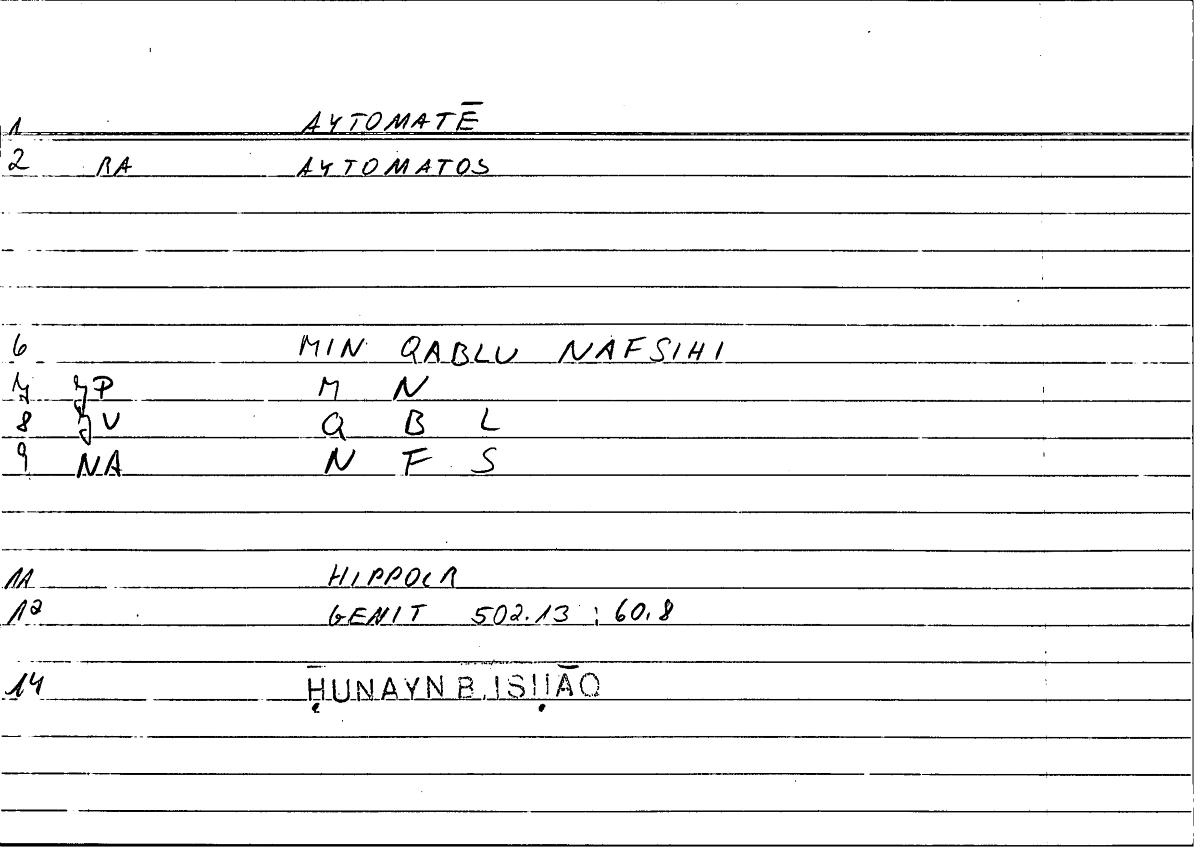 1 AYTOMATĒ
2 BA AYTOMATOS
6 MIN QABLU NAFSIHI
7 JP M N
8 JU Q B L
9 NA N F S
11 HIPPOCR
12 GENIT 502.13 ; 60.8
14 ḤUNAYN B. ISḤĀQ